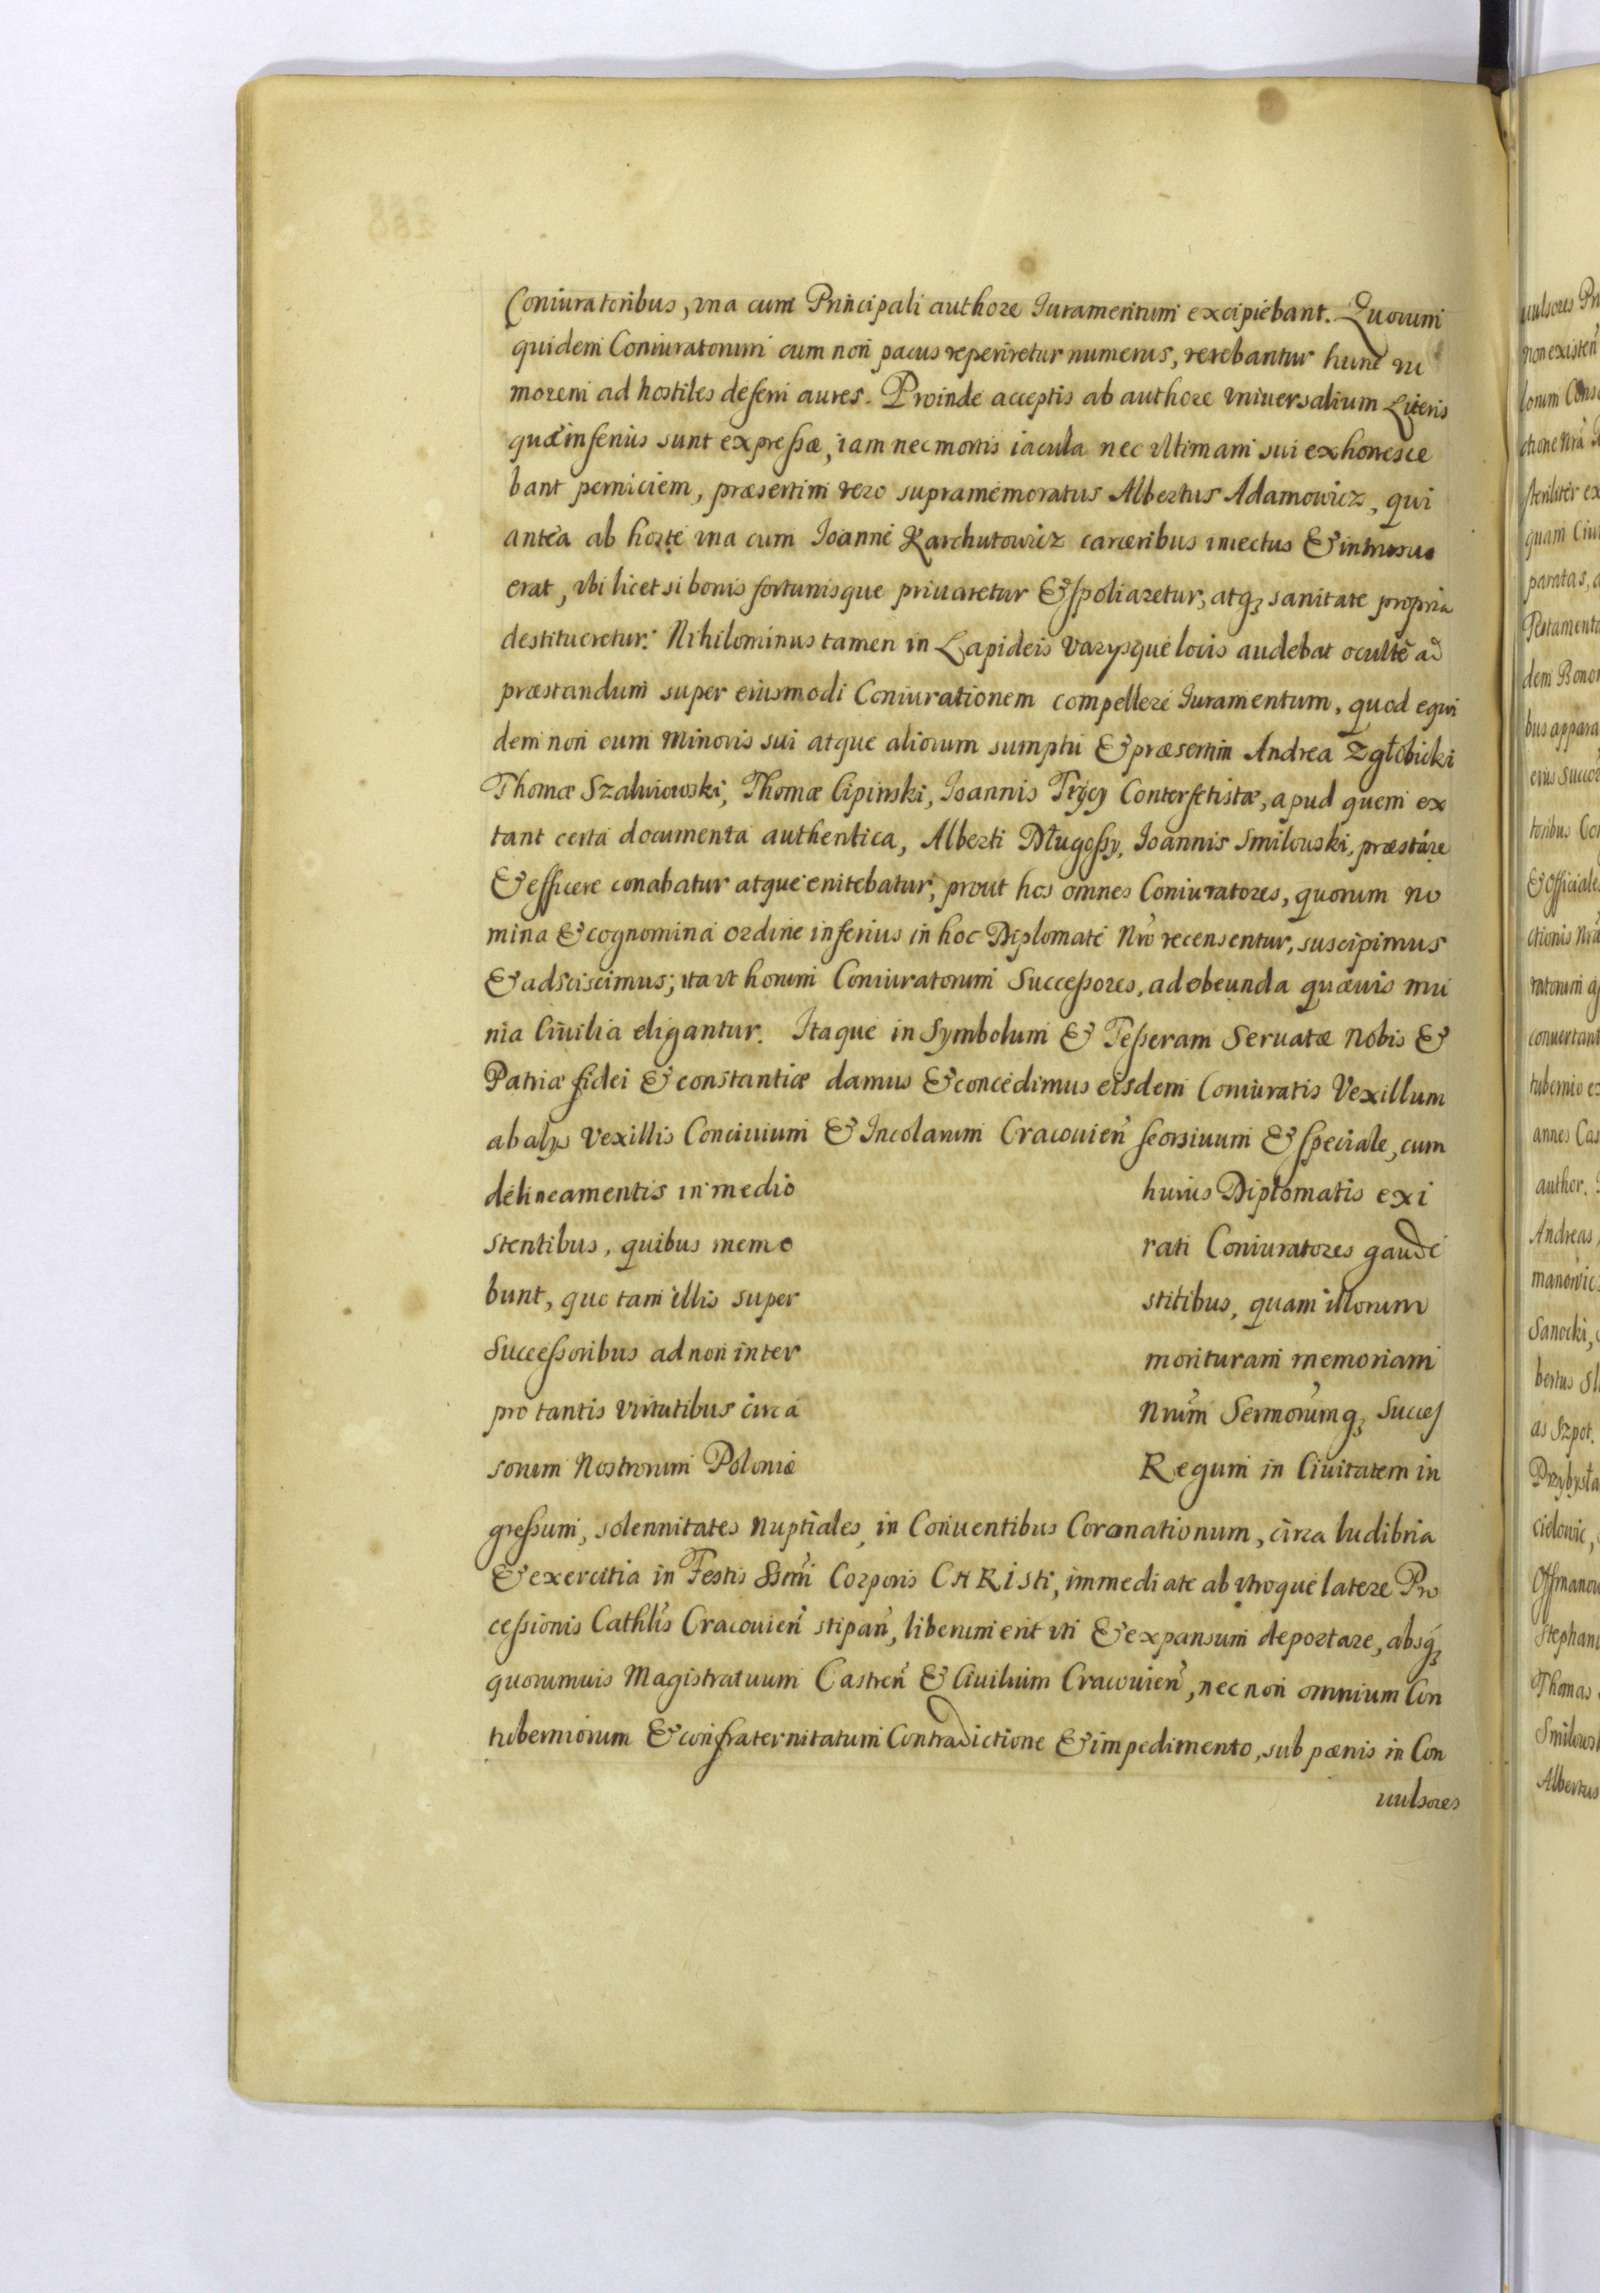 Coniuratoribus, vna cum Principali authore Iuramentum excipiebant. Quorum
quidem Coniuratorum cum non pacus reperiretur numerus, verebantur hunc ru
morem ad hostiles deferri aures. Proinde acceptis ab authore vniversalium Literis
quæ inferius sunt expreßæ, iam nec mortis iacula nec vltimam sui exhorresce
bant perniciem, præsertim vero supramemoratus Albertus Adamowicz, qui
antea ab hoste vna cum Ioanne Karchutowicz carceribus iniectus & intrusus
erat, vbi licet si bonis fortunisque priuaretur & spoliaretur, atq; sanitate propria
destitueretur: Nihilominus tamen in Lapideis varysque locis audebat oculte ad
præstandum super eiusmodi Coniurationem compellere Iuramentum, quod equi
dem non cum Minoris sui atque aliorum sumptu & præsertim Andrea Zgłobicki
Thomæ Szalwiowski, Thomæ Lipinski, Ioannis Trycy Conterfetistæ, apud quem ex
tant certa documenta authentica, Alberti Długoßy, Ioannis Smilowski, præstare
& efficere conabatur atque enitebatur, prout hos omnes Coniuratores, quorum no
mina & cognomina ordine inferius in hoc Diplomate Nrõ recensentur, suscipimus
& adsciscimus; ita vt horum Coniuratorum Succeßores, ad obeunda quæuis mu
nia Ciuilia eligantur. Itaque in Symbolum & Teßeram Seruatæ Nobis &
Patriæ fidei & constantiæ damus & concedimus eisdem Coniuratis Vexillum
ab alys Vexillis Conciuium & Incolarum Cracouień seorsiuum & speciale, cum
delineamentis in medio huius Diplomatis exi
stentibus, quibus memo rati Coniuratores gaude
bunt, quo tam illis super stitibus, quam illorum
Succeßoribus ad non inter morituram memoriam
pro tantis virtutibus circa Nrũm Sermorũmq; Succes
sorum Nostrorum Poloniæ Regum in Ciuitatem in
greßum, solennitates Nuptiales, in Conuentibus Coronationum, circa ludibria
& exercitia in Festis SSmi Corporis CHRIsti, immediate ab vtroque latere Pro
ceßionis Cathlis Cracouień stipań, liberum erit vti & expansum deportare, absq;
quorumuis Magistratuum Castreń & Ciuilium Cracouień, nec non omnium Con
tuberniorum & confraternitatum Contradictione & impedimento, sub pænis in Con
uulsores